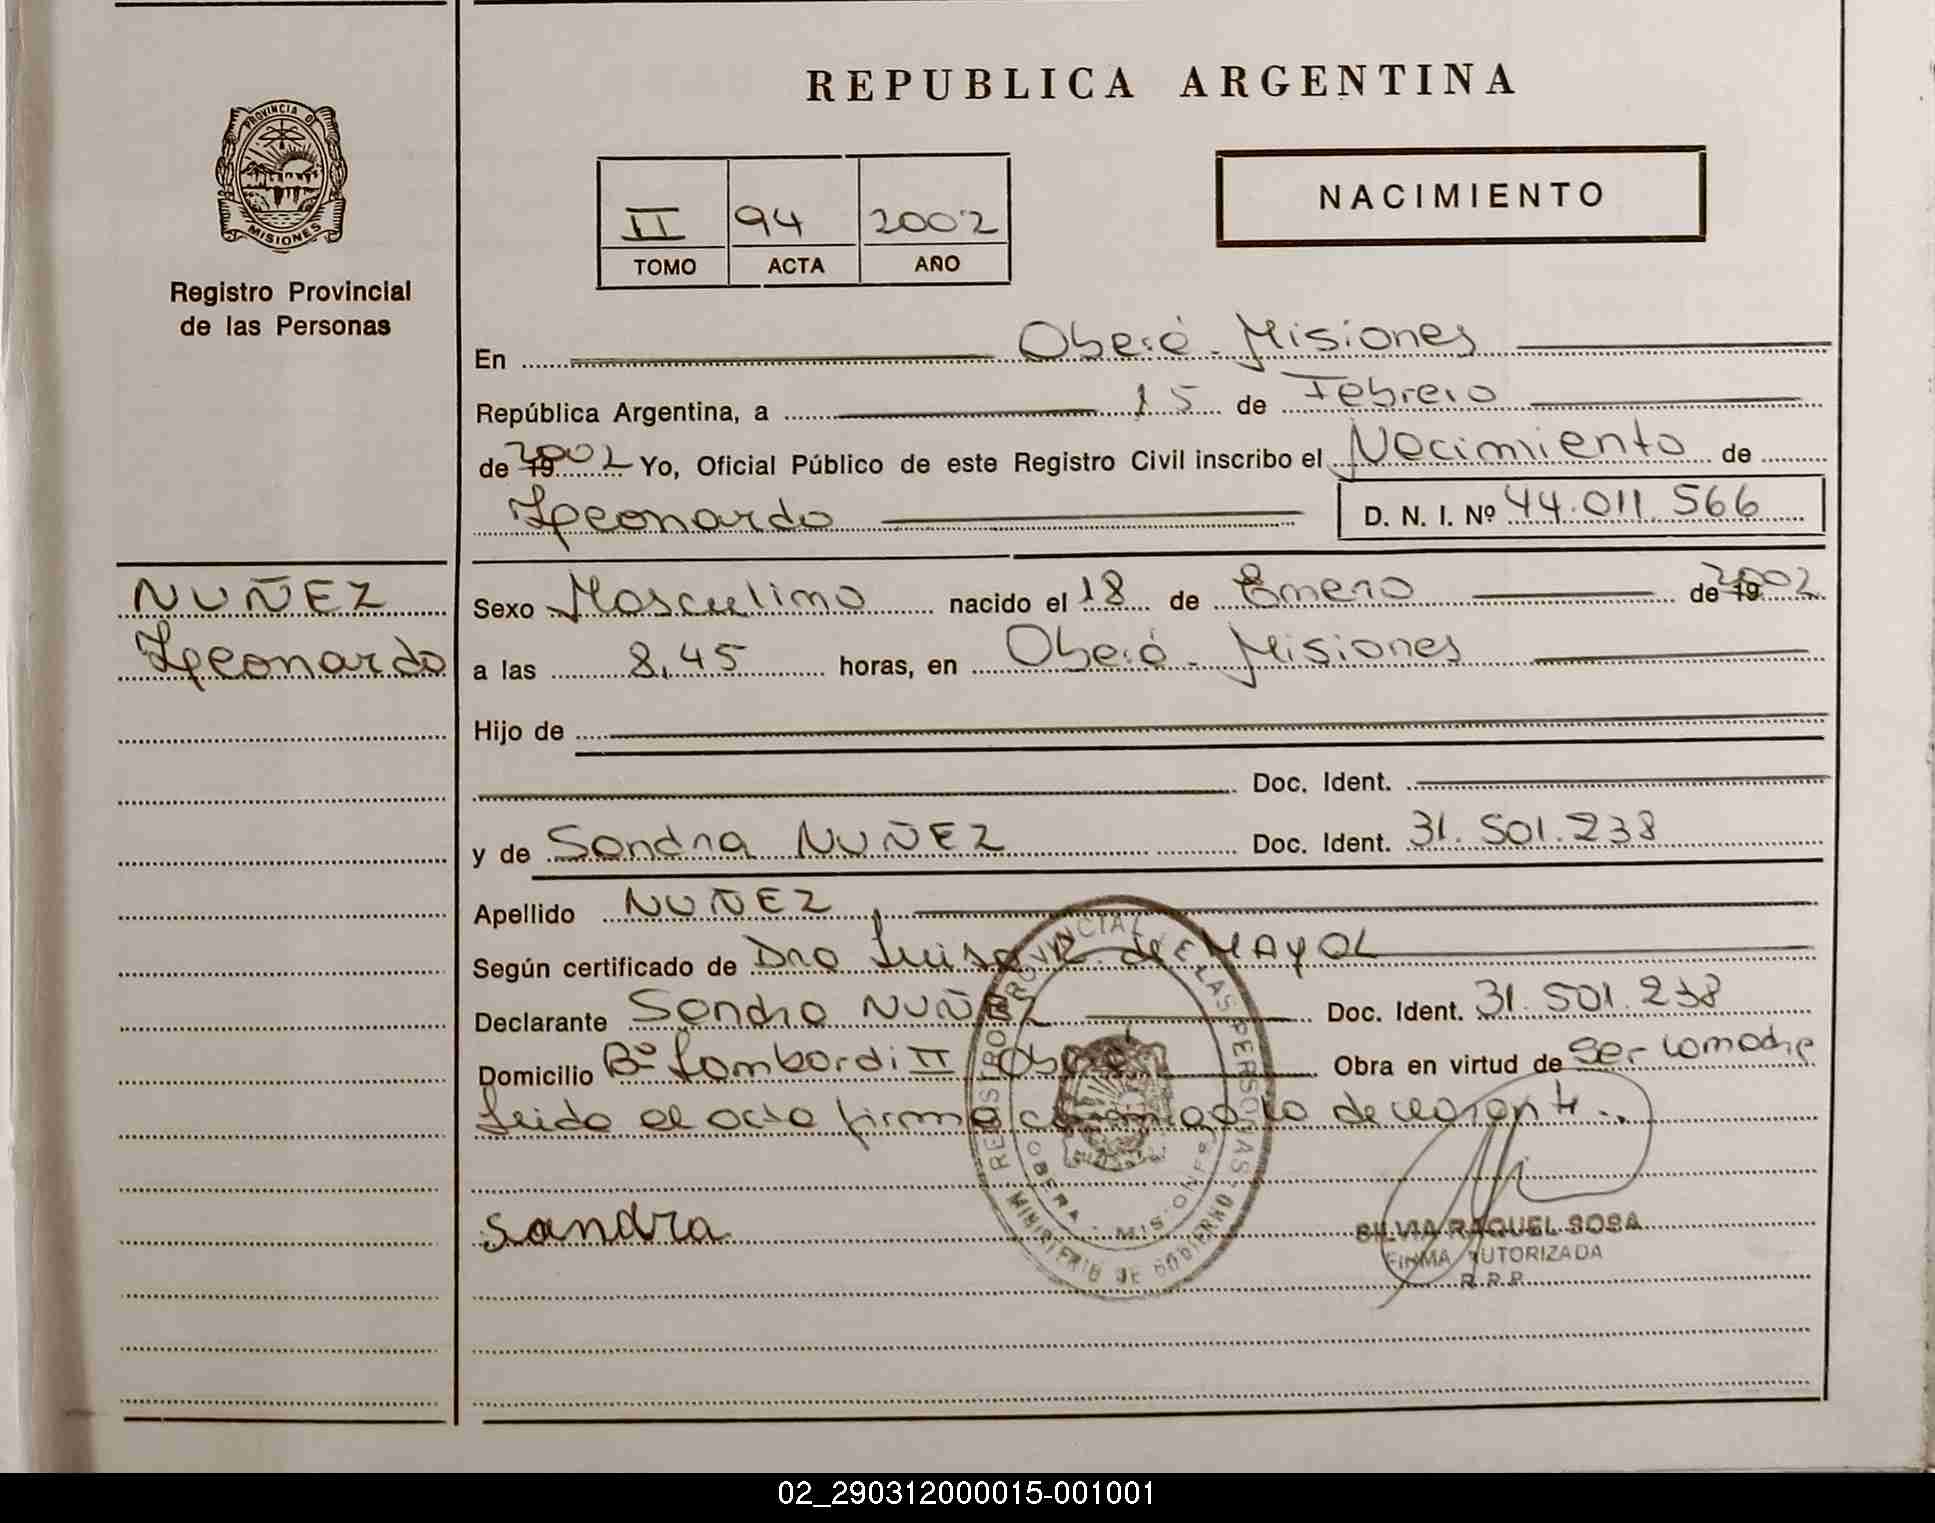 REPUBLICA ARGENTINA
PROVINCIA D
MISIONES
Registro Provincial
de las Personas
II 94 2002
TOMO ACTA AÑO
NACIMIENTO
En Oberá - Misiones
República Argentina, a 15 de Febrero
de 19 2002 Yo, Oficial Público de este Registro Civil inscribo el Nacimiento de
Leonardo D. N. I. Nº 44.011.566
NUÑEZ
Leonardo
Sexo Masculino nacido el 18 de Enero de 19 2002
a las 8,45 horas, en Oberá - Misiones
Hijo de
Doc. Ident.
y de Sandra NUÑEZ Doc. Ident. 31.501.238
Apellido NUÑEZ
Según certificado de Dra Luisa de MAYOL
Declarante Sandra NUÑEZ Doc. Ident. 31.501.238
Domicilio Bº Lombardi II Oberá Obra en virtud de ser la madre
Leida el acta firma conmigo la declarante..
REGISTRO PROVINCIAL DE LAS PERSONAS
OBERA - MISIONES
MINISTERIO DE GOBIERNO
Sandra
SILVIA RAQUEL SOSA
FIRMA AUTORIZADA
R.R.P.
02_290312000015-001001